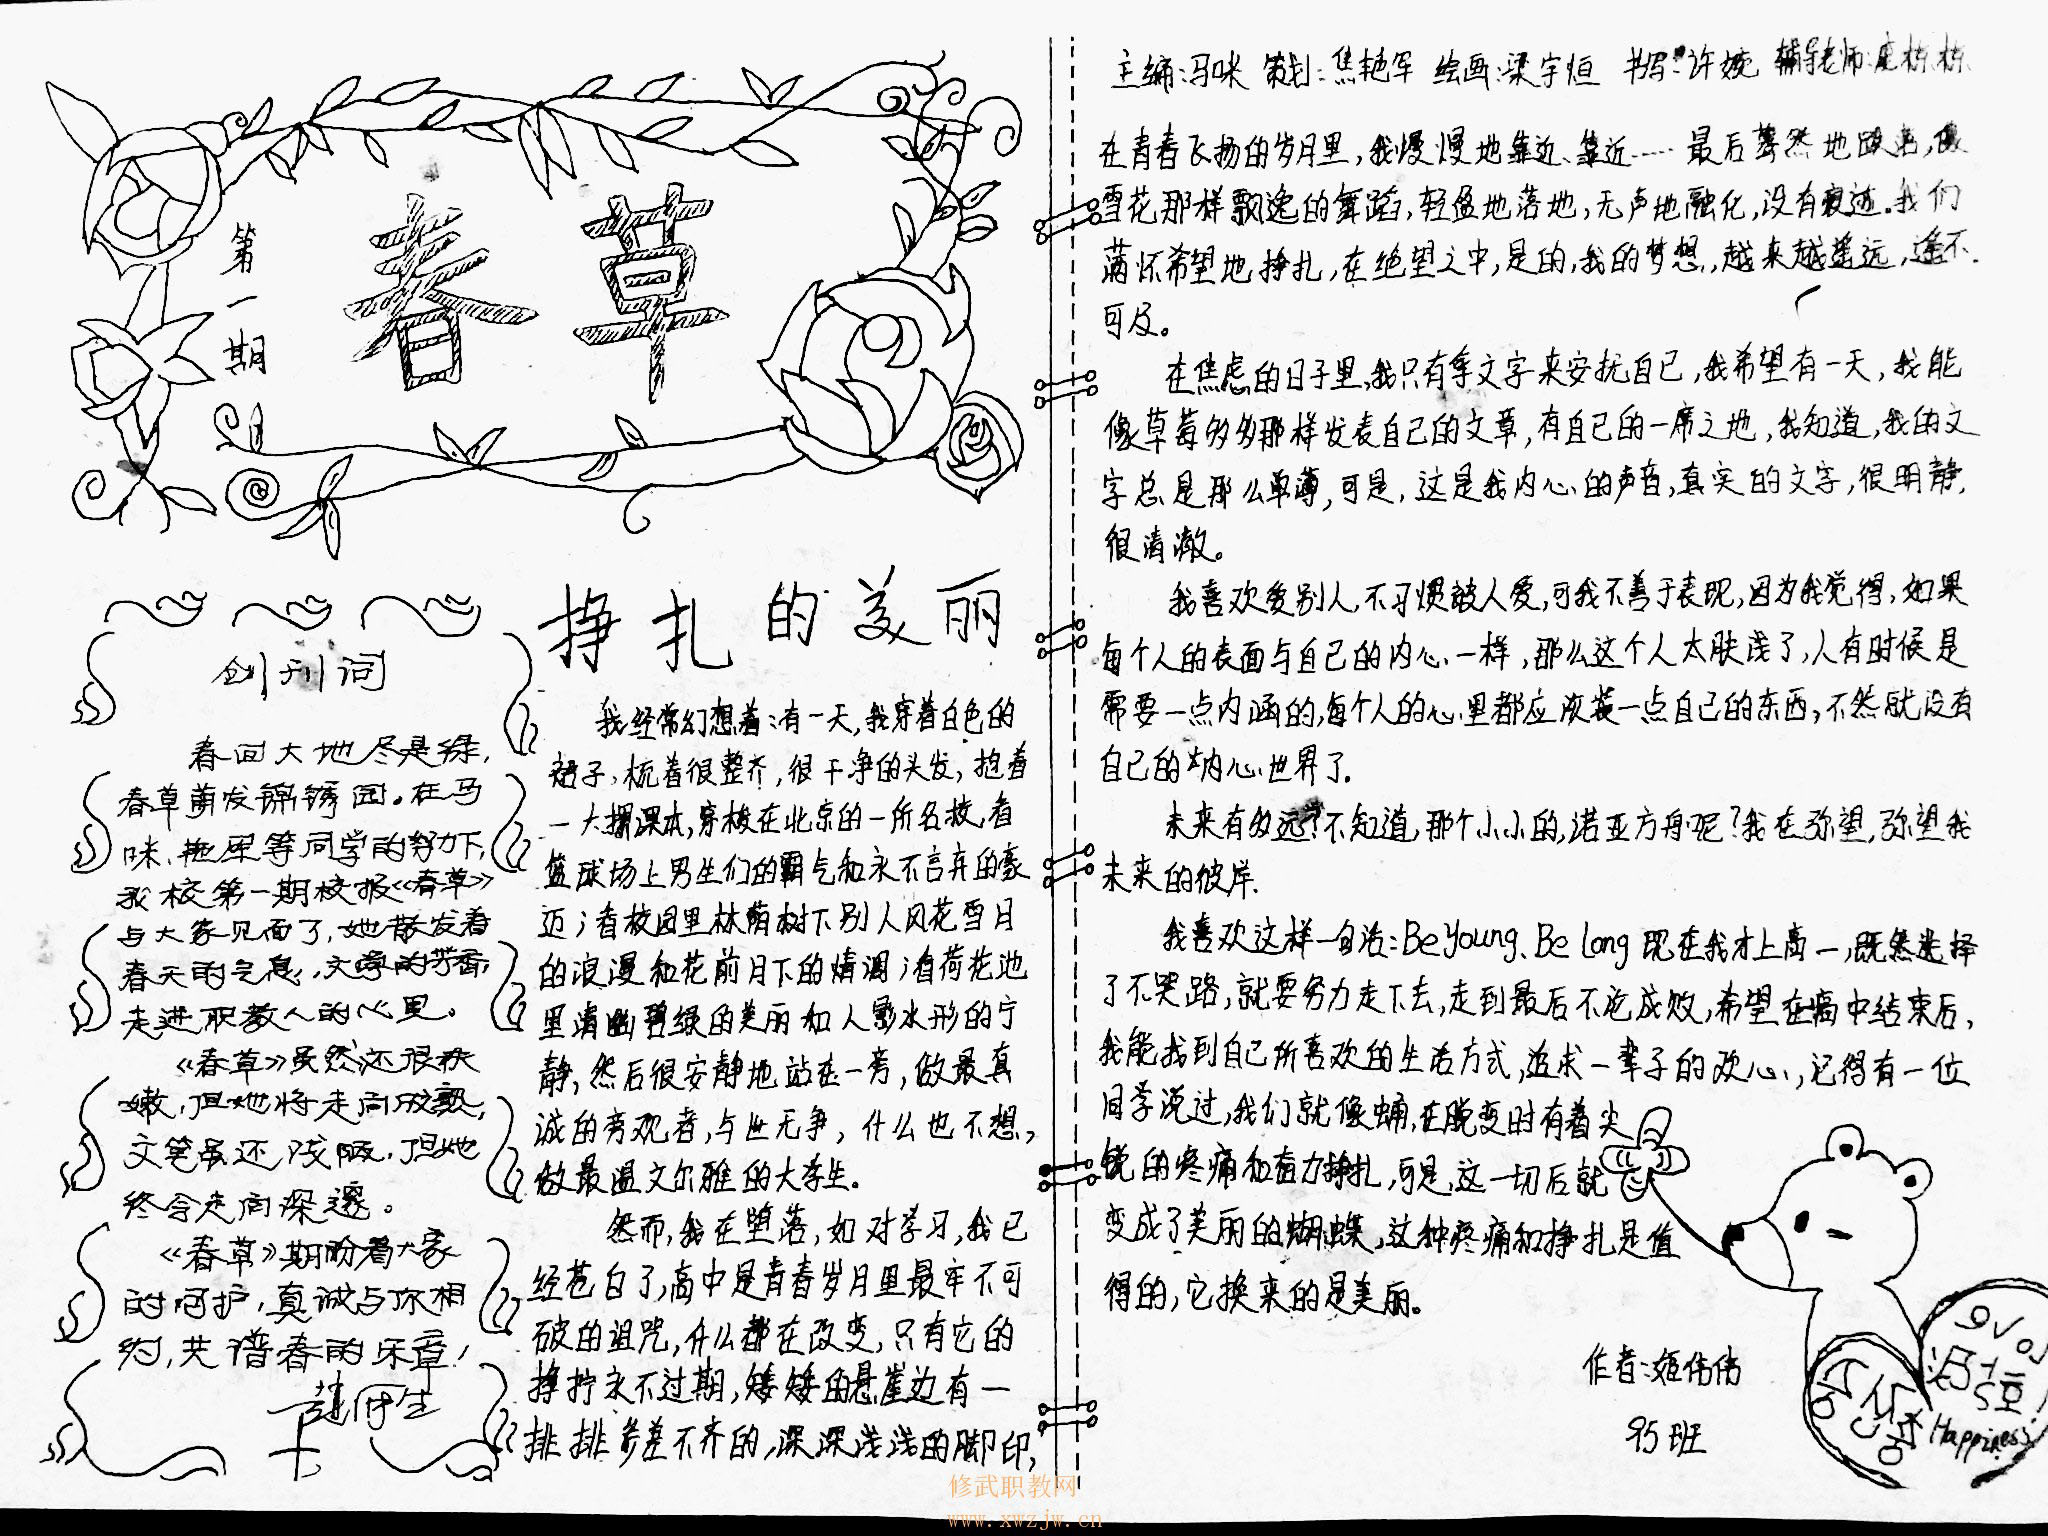 第一期
春草
创刊词
春回大地尽是绿，
春草萌发锦锈园。在马
咪、等同学的努力下，
我校第一期校报《春草》
与大家见面了，她散发着
春天的气息，文学的芳香，
走进职教人的心里。
《春草》虽然还很稚
嫩，但她将走向成熟，
文笔虽还浅陋，但她
终会走向深邃。
《春草》期盼着大家
的呵护，真诚与你相
约，共谱春的乐章！
挣扎的美丽
我经常幻想着：有一天，我穿着白色的
裙子，梳着很整齐，很干净的头发，抱着
一大摞课本，穿梭在北京的一所名校，看
篮球场上男生们的霸气和永不言弃的豪
迈；看校园里林荫树下别人风花雪月
的浪漫和花前月下的情调；看荷花池
里清幽碧绿的美丽和人影水形的宁
静，然后很安静地站在一旁，做最真
诚的旁观者，与世无争，什么也不想，
做最温文尔雅的大学生。
然而，我在堕落，如对学习，我已
经苍白了，高中是青春岁月里最牢不可
破的诅咒，什么都在改变，只有它的
狰狞永不过期，矮矮的悬崖边有一
排排参差不齐的，深深浅浅的脚印，
主编：马咪 策划：焦艳军 绘画：梁宇恒 书写：许婉 辅导老师：栋栋
在青春飞扬的岁月里，我慢慢地靠近、靠近…… 最后蓦然地跌落，像
雪花那样飘逸的舞蹈，轻盈地落地，无声地融化，没有痕迹。我们
满怀希望地挣扎，在绝望之中，是的，我的梦想，越来越遥远，遥不
可及。
在焦虑的日子里，我只有拿文字来安抚自己，我希望有一天，我能
像草莓多多那样发表自己的文章，有自己的一席之地，我知道，我的文
字总是那么单薄，可是，这是我内心的声音，真实的文字，很明静，
很清澈。
我喜欢爱别人，不习惯被人爱，可我不善于表现，因为我觉得，如果
每个人的表面与自己的内心一样，那么这个人太肤浅了，人有时候是
需要一点内涵的，每个人的心里都应该装一点自己的东西，不然就没有
自己的内心世界了。
未来有多远？不知道，那个小小的，诺亚方舟呢？我在弥望，弥望我
未来的彼岸。
我喜欢这样一句话：Be young、Be long 现在我才上高一，既然选择
了不哭路，就要努力走下去，走到最后不论成败，希望在高中结束后，
我能找到自己所喜欢的生活方式，追求一辈子的欢心，记得有一位
同学说过，我们就像蛹，在脱变时有着尖
锐的疼痛和奋力挣扎，可是，这一切后就
变成了美丽的蝴蝶，这种疼痛和挣扎是值
得的，它换来的是美丽。
作者：姬伟伟
95班
Happiness
修武职教网
www.xwzjw.cn